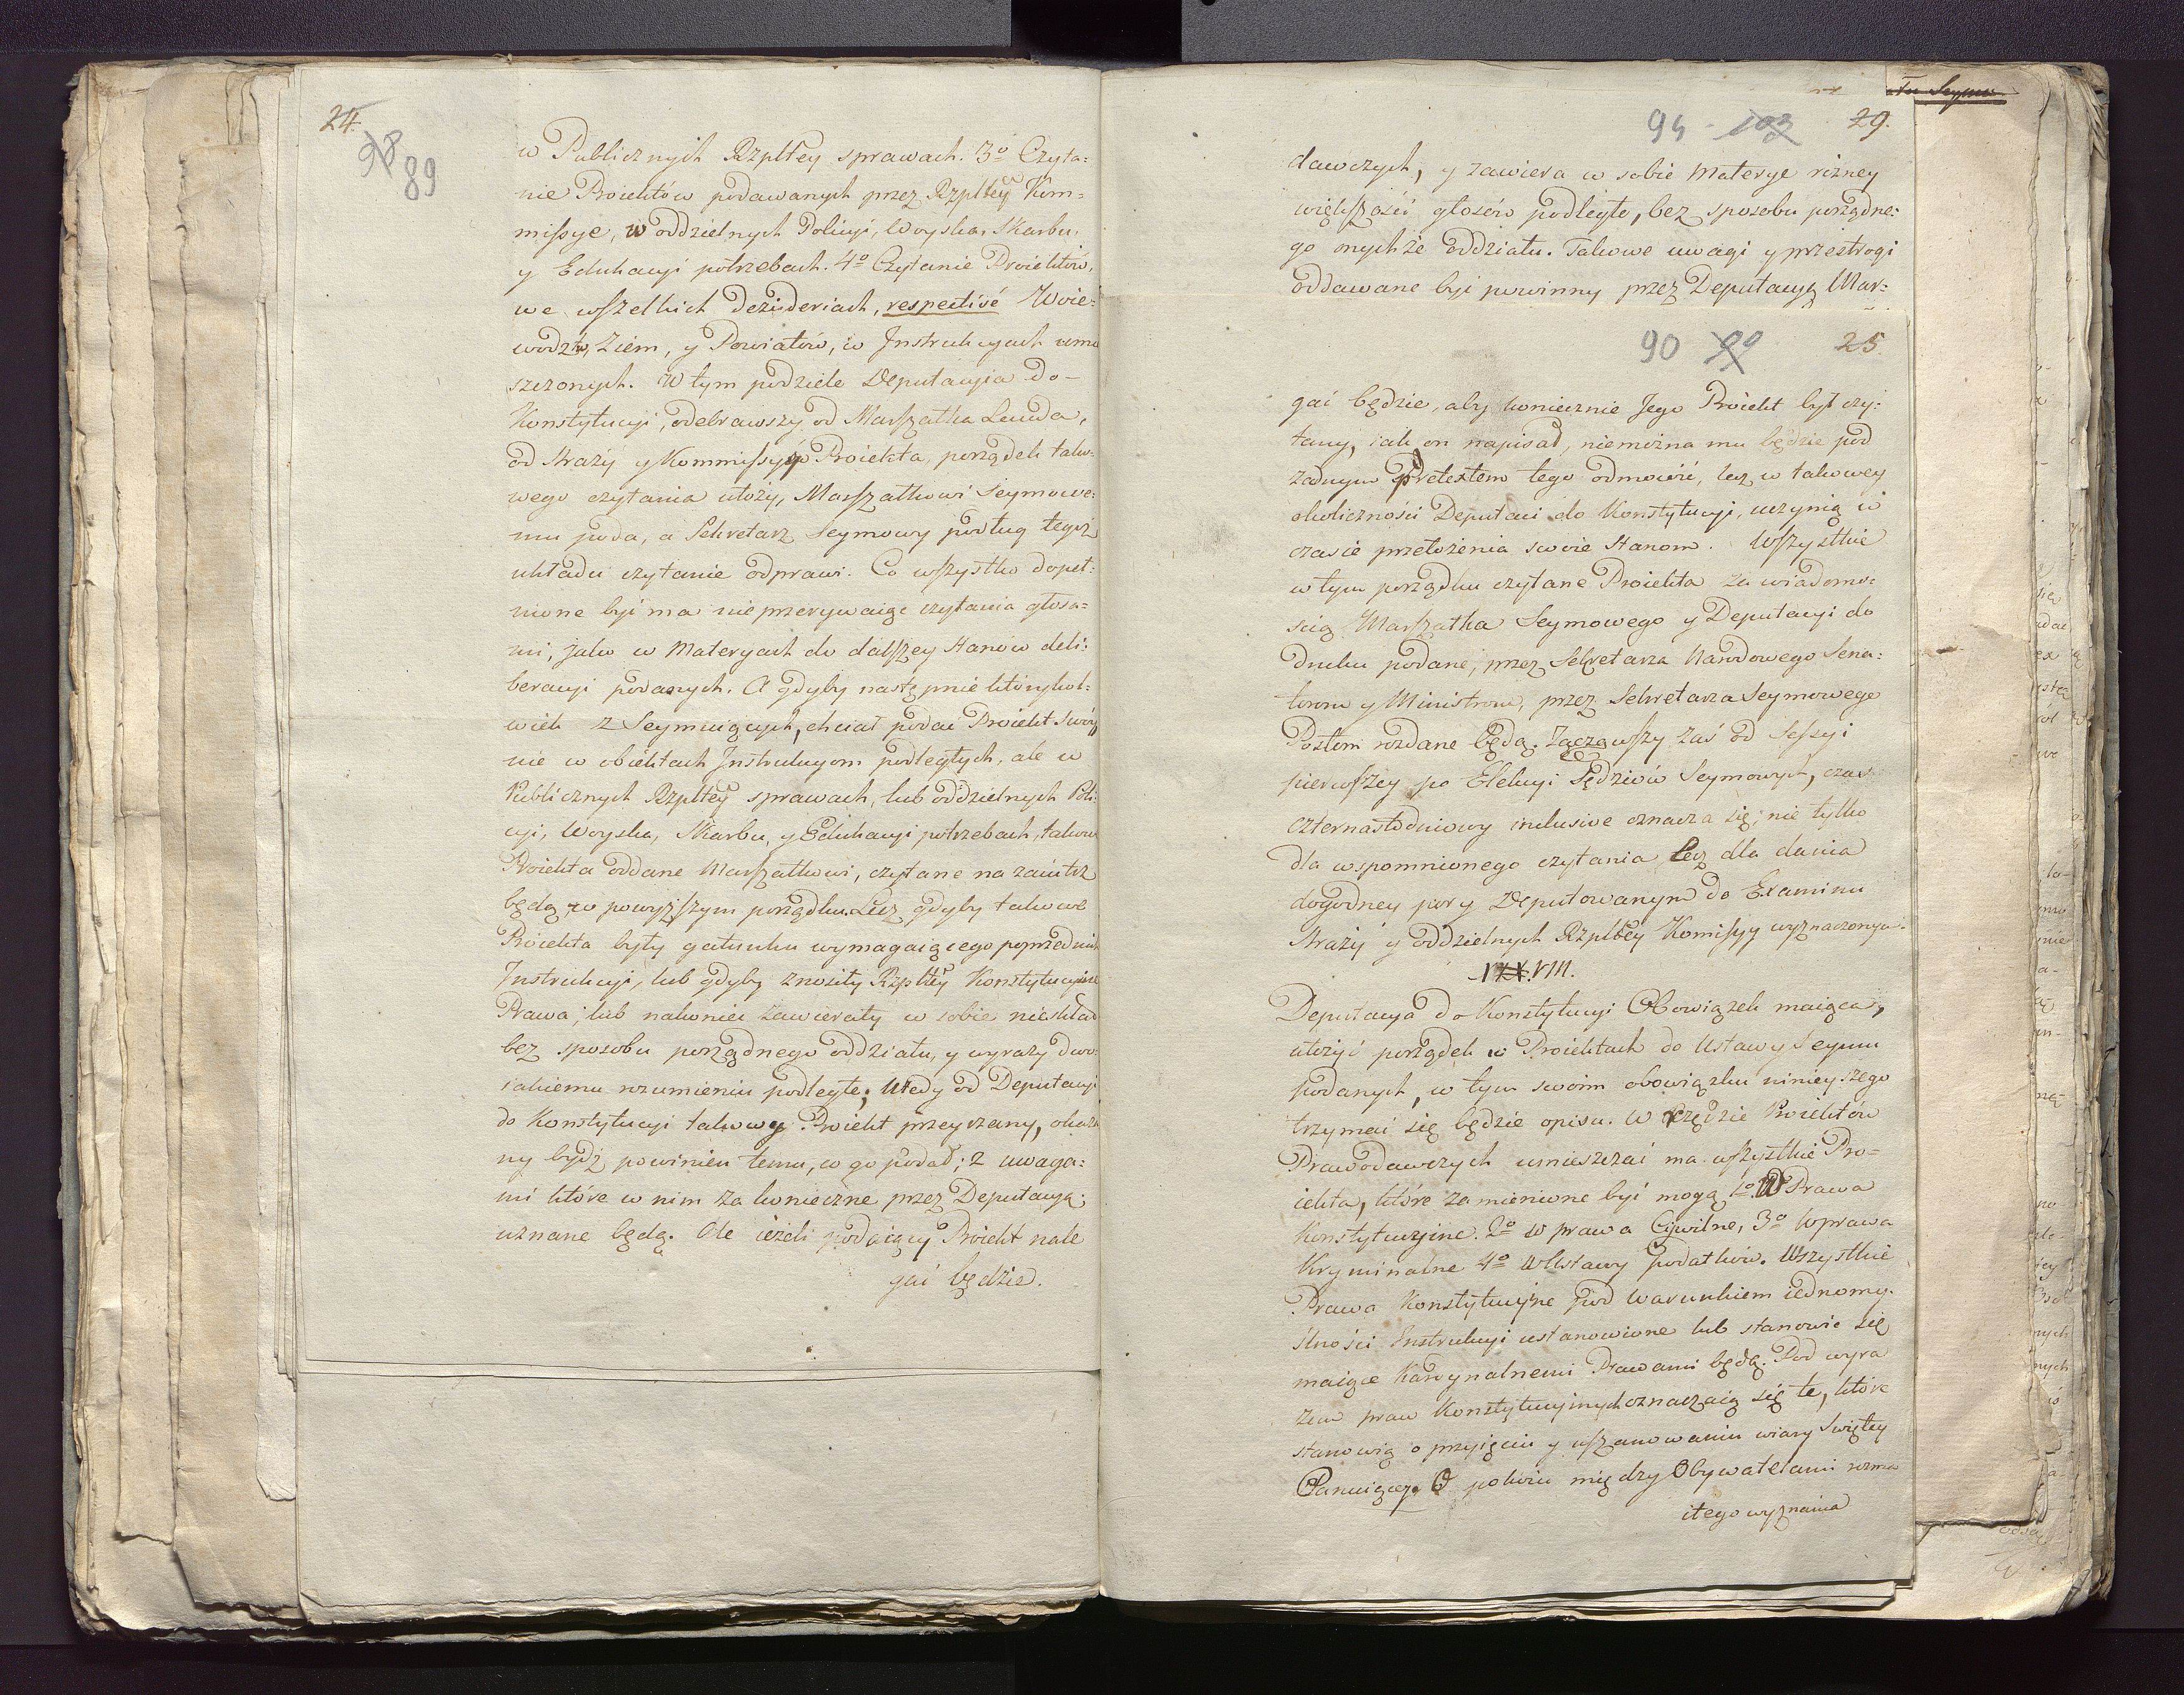 24.
98
89
w Publicznych Rzpltey sprawach. 3º Czyta=
nie Proiektów podawanych przez Rzpltey Kom=
missye, w oddzielnych Policyi, Woyska, Skarbu,
y Edukacyi potrzebach. 4º Czytanie Proiektów,
we wszelkich Dezideriach, respectivé Woie=
wodztw, Ziem, y Powiatów, w Instrukcyach umie
szczonych. W tym podziele Deputacyia do-
Konstytucyi, odebrawszy od Marszałka Lauda,
od Straży y Kommissyy Proiekta, porządek tako=
wego czytania ułoży, Marszałkowi Seymowe=
mu poda, a Sekretarz Seymowy podług tegoż
układu czytanie odprawi. Co wszystko dopeł=
nione być ma nieprzerywaiąc czytania głosa=
mi, jako w Materyach do dalszey Stanów deli=
beracyi podanych. A gdyby następnie którykol=
wiek z Seymuiących, chciał podać Proiekt swóy,
nie w obiektach Instrukcyom podległych, ale w
Publicznych Rzpltey sprawach, lub oddzielnych Poli=
cyi, Woyska, Skarbu, y Edukacyi potrzebach, takowe
Proiekta oddane Marszałkowi, czytane na zaiutrz
będą w powyższym porządku. Lecz gdyby takowe
Proiekta były gatunku wymagaiącego poprzedniczey
Instrukcyi, lub gdyby znosiły Rzpltey Konstytucyine
Prawa; lub nakoniec zawierały w sobie nieskład
bez sposobu porządnego oddziału, y wyrazy dwo=
iakiemu rozumieniu podległe; Wtedy od Deputacyi
do Konstytucyi takowy Proiekt przeyrzany, okaza
ny bydź powinien temu, co go podał; z uwaga=
mi które w nim za konieczne przez Deputacyą
uznane będą. Ale ieżeli podaiący Proiekt nale
gać będzie.
Tu Seymu
94 - 103 29.
dawczych, y zawiera w sobie Materye rózney
większości głosów podległe, bez sposobu porządne=
go onychże oddziału. Takowe uwagi y przestrogi
oddawane być powinny przez Deputacyą Mar=
90 99 25
gać będzie, aby koniecznie Jego Proiekt był czy=
tany, iak on napisał, niemożna mu będzie pod
żadnym Pretextem tego odmówić, lecz w takowey
okoliczności Deputaci do Konstytucyi, uczynią w
czasie przełożenia swoie Stanom. Wszystkie
w tym porządku czytane Proiekta za wiadomo=
scią Marszałka Seymowego y Deputacyi do
Druku podane, przez Sekretarza Narodowego Sena=
torom y Ministrom, przez Sekretarza Seymowego
Posłom rozdane będą. Zacząwszy zaś od Sessyi
pierwszey po Elekcyi Sędziów Seymowych, czas
czternastodniowy inclusive oznacza się; nie tylko
dla wspomnionego czytania Lecz dla dania
dogodney pory Deputowanym do Examinu
Straży y oddzielnych Rzpltey Komissyy wyznaczonym.
XXVIII.
Deputacya do Konstytucyi Obowiązek maiąca,
ułożyć porządek w Proiektach do Ustawy Seymu
podanych, w tym swoim obowiązku ninieyszego
trzymać się będzie opisu. W rzędzie Proiektów
Prawodawczych umieszczać ma wszystkie Pro=
iekta, które zamienione być mogą 1º W Prawa
Konstytucyine. 2º w prawa Cywilne, 3º w prawa
Kryminalne 4º w Ustawy podatków. Wszystkie
Prawa Konstytucyine pod warunkiem iednomy=
slności Instrukcyi ustanowione lub stanowić się
maiące Kardynalnemi Prawami będą. Pod wyra
zem praw Konstytucyinych oznaczaią się te, które
stanowią o przyięciu y uszanowaniu wiary Swiętey
Panuiącey. O pokoiu między Obywatelami rozma
itego wyznania